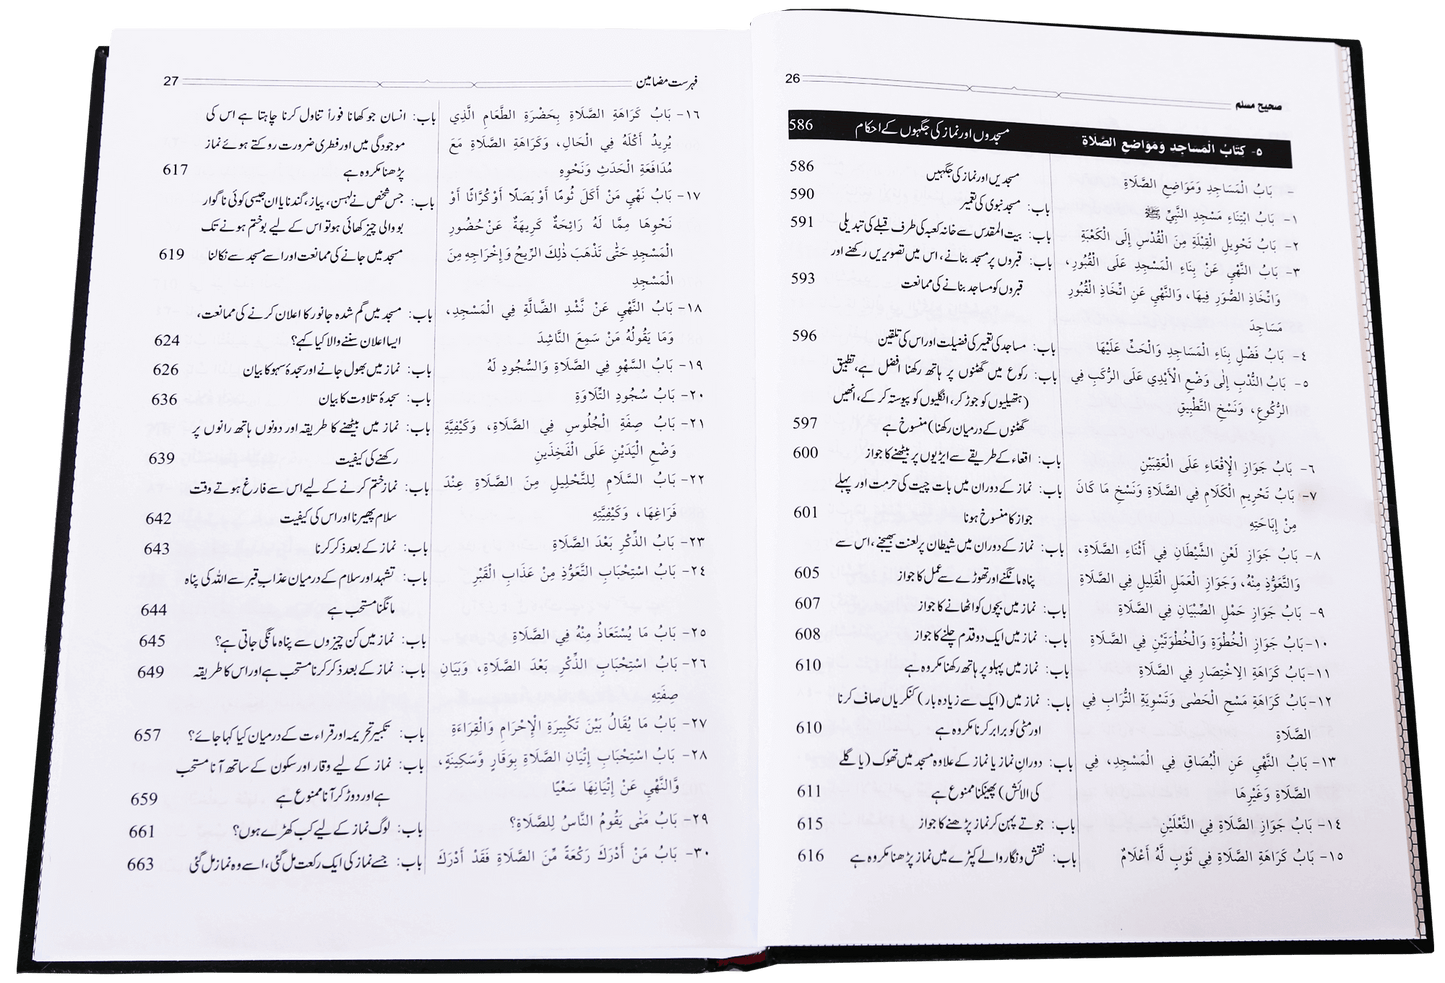 صحیح مسلم 26
٥- كتابُ الْمَساجِدِ وَمَوَاضِعِ الصَّلَاةِ مسجدوں اور نماز کی جگہوں کے احکام 586
- بَابُ الْمَسَاجِدِ وَمَوَاضِعِ الصَّلَاةِ مسجدیں اور نماز کی جگہیں 586
١- بَابُ ابْتِنَاءِ مَسْجِدِ النَّبِيِّ ﷺ باب: مسجد نبوی کی تعمیر 590
٢- بَابُ تَحْوِيلِ الْقِبْلَةِ مِنَ الْقُدْسِ إِلَى الْكَعْبَةِ باب: بیت المقدس سے خانہ کعبہ کی طرف قبلے کی تبدیلی 591
٣- بَابُ النَّهْيِ عَنْ بِنَاءِ الْمَسْجِدِ عَلَى الْقُبُورِ، باب: قبروں پر مسجد بنانے، اس میں تصویریں رکھنے اور
وَاتِّخَاذِ الصُّوَرِ فِيهَا، وَالنَّهْيِ عَنِ اتِّخَاذِ الْقُبُورِ قبروں کو مساجد بنانے کی ممانعت 593
مَسَاجِدَ
٤- بَابُ فَضْلِ بِنَاءِ الْمَسَاجِدِ وَالْحَثِّ عَلَيْهَا باب: مساجد کی تعمیر کی فضیلت اور اس کی تلقین 596
٥- بَابُ النَّدْبِ إِلَى وَضْعِ الْأَيْدِي عَلَى الرُّكَبِ فِي باب: رکوع میں گھٹنوں پر ہاتھ رکھنا افضل ہے، تطبیق
الرُّكُوعِ، وَنَسْخِ التَّطْبِيقِ (ہتھیلیوں کو جوڑ کر، انگلیوں کو پیوستہ کر کے، انھیں
گھٹنوں کے درمیان رکھنا) منسوخ ہے 597
٦- بَابُ جَوَازِ الْإِقْعَاءِ عَلَى الْعَقِبَيْنِ باب: اقعاء کے طریقے سے ایڑیوں پر بیٹھنے کا جواز 600
٧- بَابُ تَحْرِيمِ الْكَلَامِ فِي الصَّلَاةِ وَنَسْخِ مَا كَانَ باب: نماز کے دوران میں بات چیت کی حرمت اور پہلے
مِنْ إِبَاحَتِهِ جواز کا منسوخ ہونا 601
٨- بَابُ جَوَازِ لَعْنِ الشَّيْطَانِ فِي أَثْنَاءِ الصَّلَاةِ، باب: نماز کے دوران میں شیطان پر لعنت بھیجنے، اس سے
وَالتَّعَوُّذِ مِنْهُ، وَجَوَازِ الْعَمَلِ الْقَلِيلِ فِي الصَّلَاةِ پناہ مانگنے اور تھوڑے سے عمل کا جواز 605
٩- بَابُ جَوَازِ حَمْلِ الصِّبْيَانِ فِي الصَّلَاةِ باب: نماز میں بچوں کو اٹھانے کا جواز 607
١٠- بَابُ جَوَازِ الْخُطْوَةِ وَالْخُطْوَتَيْنِ فِي الصَّلَاةِ باب: نماز میں ایک دو قدم چلنے کا جواز 608
١١- بَابُ كَرَاهَةِ الِاخْتِصَارِ فِي الصَّلَاةِ باب: نماز میں پہلو پر ہاتھ رکھنا مکروہ ہے 610
١٢- بَابُ كَرَاهَةِ مَسْحِ الْحَصٰى وَتَسْوِيَةِ التُّرَابِ فِي باب: نماز میں (ایک سے زیادہ بار) کنکریاں صاف کرنا
الصَّلَاةِ اور مٹی کو برابر کرنا مکروہ ہے 610
١٣- بَابُ النَّهْيِ عَنِ الْبُصَاقِ فِي الْمَسْجِدِ، فِي باب: دوران نماز یا نماز کے علاوہ مسجد میں تھوک (یا گلے
الصَّلَاةِ وَغَيْرِهَا کی الائش) پھینکنا ممنوع ہے 611
١٤- بَابُ جَوَازِ الصَّلَاةِ فِي النَّعْلَيْنِ باب: جوتے پہن کر نماز پڑھنے کا جواز 615
١٥- بَابُ كَرَاهَةِ الصَّلَاةِ فِي ثَوْبٍ لَّهُ أَعْلَامٌ باب: نقش و نگار والے کپڑے میں نماز پڑھنا مکروہ ہے 616
فہرست مضامین 27
١٦- بَابُ كَرَاهَةِ الصَّلَاةِ بِحَضْرَةِ الطَّعَامِ الَّذِي باب: انسان جو کھانا فوراً تناول کرنا چاہتا ہے اس کی
يُرِيدُ أَكْلَهُ فِي الْحَالِ، وَكَرَاهَةِ الصَّلَاةِ مَعَ موجودگی میں اور فطری ضرورت روکتے ہوئے نماز
مُدَافَعَةِ الْحَدَثِ وَنَحْوِهِ پڑھنا مکروہ ہے 617
١٧- بَابُ نَهْيِ مَنْ أَكَلَ ثُومًا أَوْ بَصَلًا أَوْ كُرَّاثًا أَوْ باب: جس شخص نے لہسن، پیاز، گندنا یا ان جیسی کوئی ناگوار
نَحْوِهَا مِمَّا لَهُ رَائِحَةٌ كَرِيهَةٌ عَنْ حُضُورِ بو والی چیز کھائی ہو تو اس کے لیے بو ختم ہونے تک
الْمَسْجِدِ حَتَّى تَذْهَبَ ذٰلِكَ الرِّيحُ وَإِخْرَاجِهِ مِنَ مسجد میں جانے کی ممانعت اور اسے مسجد سے نکالنا 619
الْمَسْجِدِ
١٨- بَابُ النَّهْيِ عَنْ نَشْدِ الضَّالَّةِ فِي الْمَسْجِدِ، باب: مسجد میں گم شدہ جانور کا اعلان کرنے کی ممانعت،
وَمَا يَقُولُهُ مَنْ سَمِعَ النَّاشِدَ ایسا اعلان سننے والا کیا کہے؟ 624
١٩- بَابُ السَّهْوِ فِي الصَّلَاةِ وَالسُّجُودِ لَهُ باب: نماز میں بھول جانے اور سجدۂ سہو کا بیان 626
٢٠- بَابُ سُجُودِ التِّلَاوَةِ باب: سجدۂ تلاوت کا بیان 636
٢١- بَابُ صِفَةِ الْجُلُوسِ فِي الصَّلَاةِ، وَكَيْفِيَّةِ باب: نماز میں بیٹھنے کا طریقہ اور دونوں ہاتھ رانوں پر
وَضْعِ الْيَدَيْنِ عَلَى الْفَخِذَيْنِ رکھنے کی کیفیت 639
٢٢- بَابُ السَّلَامِ لِلتَّحْلِيلِ مِنَ الصَّلَاةِ عِنْدَ باب: نماز ختم کرنے کے لیے اس سے فارغ ہوتے وقت
فَرَاغِهَا، وَكَيْفِيَّتِهِ سلام پھیرنا اور اس کی کیفیت 642
٢٣- بَابُ الذِّكْرِ بَعْدَ الصَّلَاةِ باب: نماز کے بعد ذکر کرنا 643
٢٤- بَابُ اسْتِحْبَابِ التَّعَوُّذِ مِنْ عَذَابِ الْقَبْرِ باب: تشہد اور سلام کے درمیان عذاب قبر سے اللہ کی پناہ
مانگنا مستحب ہے 644
٢٥- بَابُ مَا يُسْتَعَاذُ مِنْهُ فِي الصَّلَاةِ باب: نماز میں کن چیزوں سے پناہ مانگی جاتی ہے؟ 645
٢٦- بَابُ اسْتِحْبَابِ الذِّكْرِ بَعْدَ الصَّلَاةِ، وَبَيَانِ باب: نماز کے بعد ذکر کرنا مستحب ہے اور اس کا طریقہ 649
صِفَتِهِ
٢٧- بَابُ مَا يُقَالُ بَيْنَ تَكْبِيرَةِ الْإِحْرَامِ وَالْقِرَاءَةِ باب: تکبیر تحریمہ اور قراءت کے درمیان کیا کہا جائے؟ 657
٢٨- بَابُ اسْتِحْبَابِ إِتْيَانِ الصَّلَاةِ بِوَقَارٍ وَّسَكِينَةٍ، باب: نماز کے لیے وقار اور سکون کے ساتھ آنا مستحب
وَّالنَّهْيِ عَنْ إِتْيَانِهَا سَعْيًا ہے اور دوڑ کر آنا ممنوع ہے 659
٢٩- بَابُ مَتٰى يَقُومُ النَّاسُ لِلصَّلَاةِ؟ باب: لوگ نماز کے لیے کب کھڑے ہوں؟ 661
٣٠- بَابُ مَنْ أَدْرَكَ رَكْعَةً مِّنَ الصَّلَاةِ فَقَدْ أَدْرَكَ باب: جسے نماز کی ایک رکعت مل گئی، اسے وہ نماز مل گئی 663